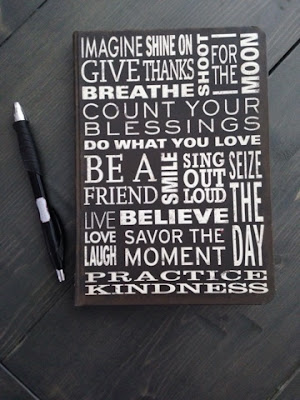 IMAGINE SHINE ON
GIVE THANKS
BREATHE
SHOOT
FOR THE
MOON
COUNT YOUR
BLESSINGS
DO WHAT YOU LOVE
BE A
FRIEND
SMILE
SING
OUT
LOUD
SEIZE
THE
DAY
LIVE
LOVE
LAUGH
BELIEVE
SAVOR THE
MOMENT
PRACTICE
KINDNESS